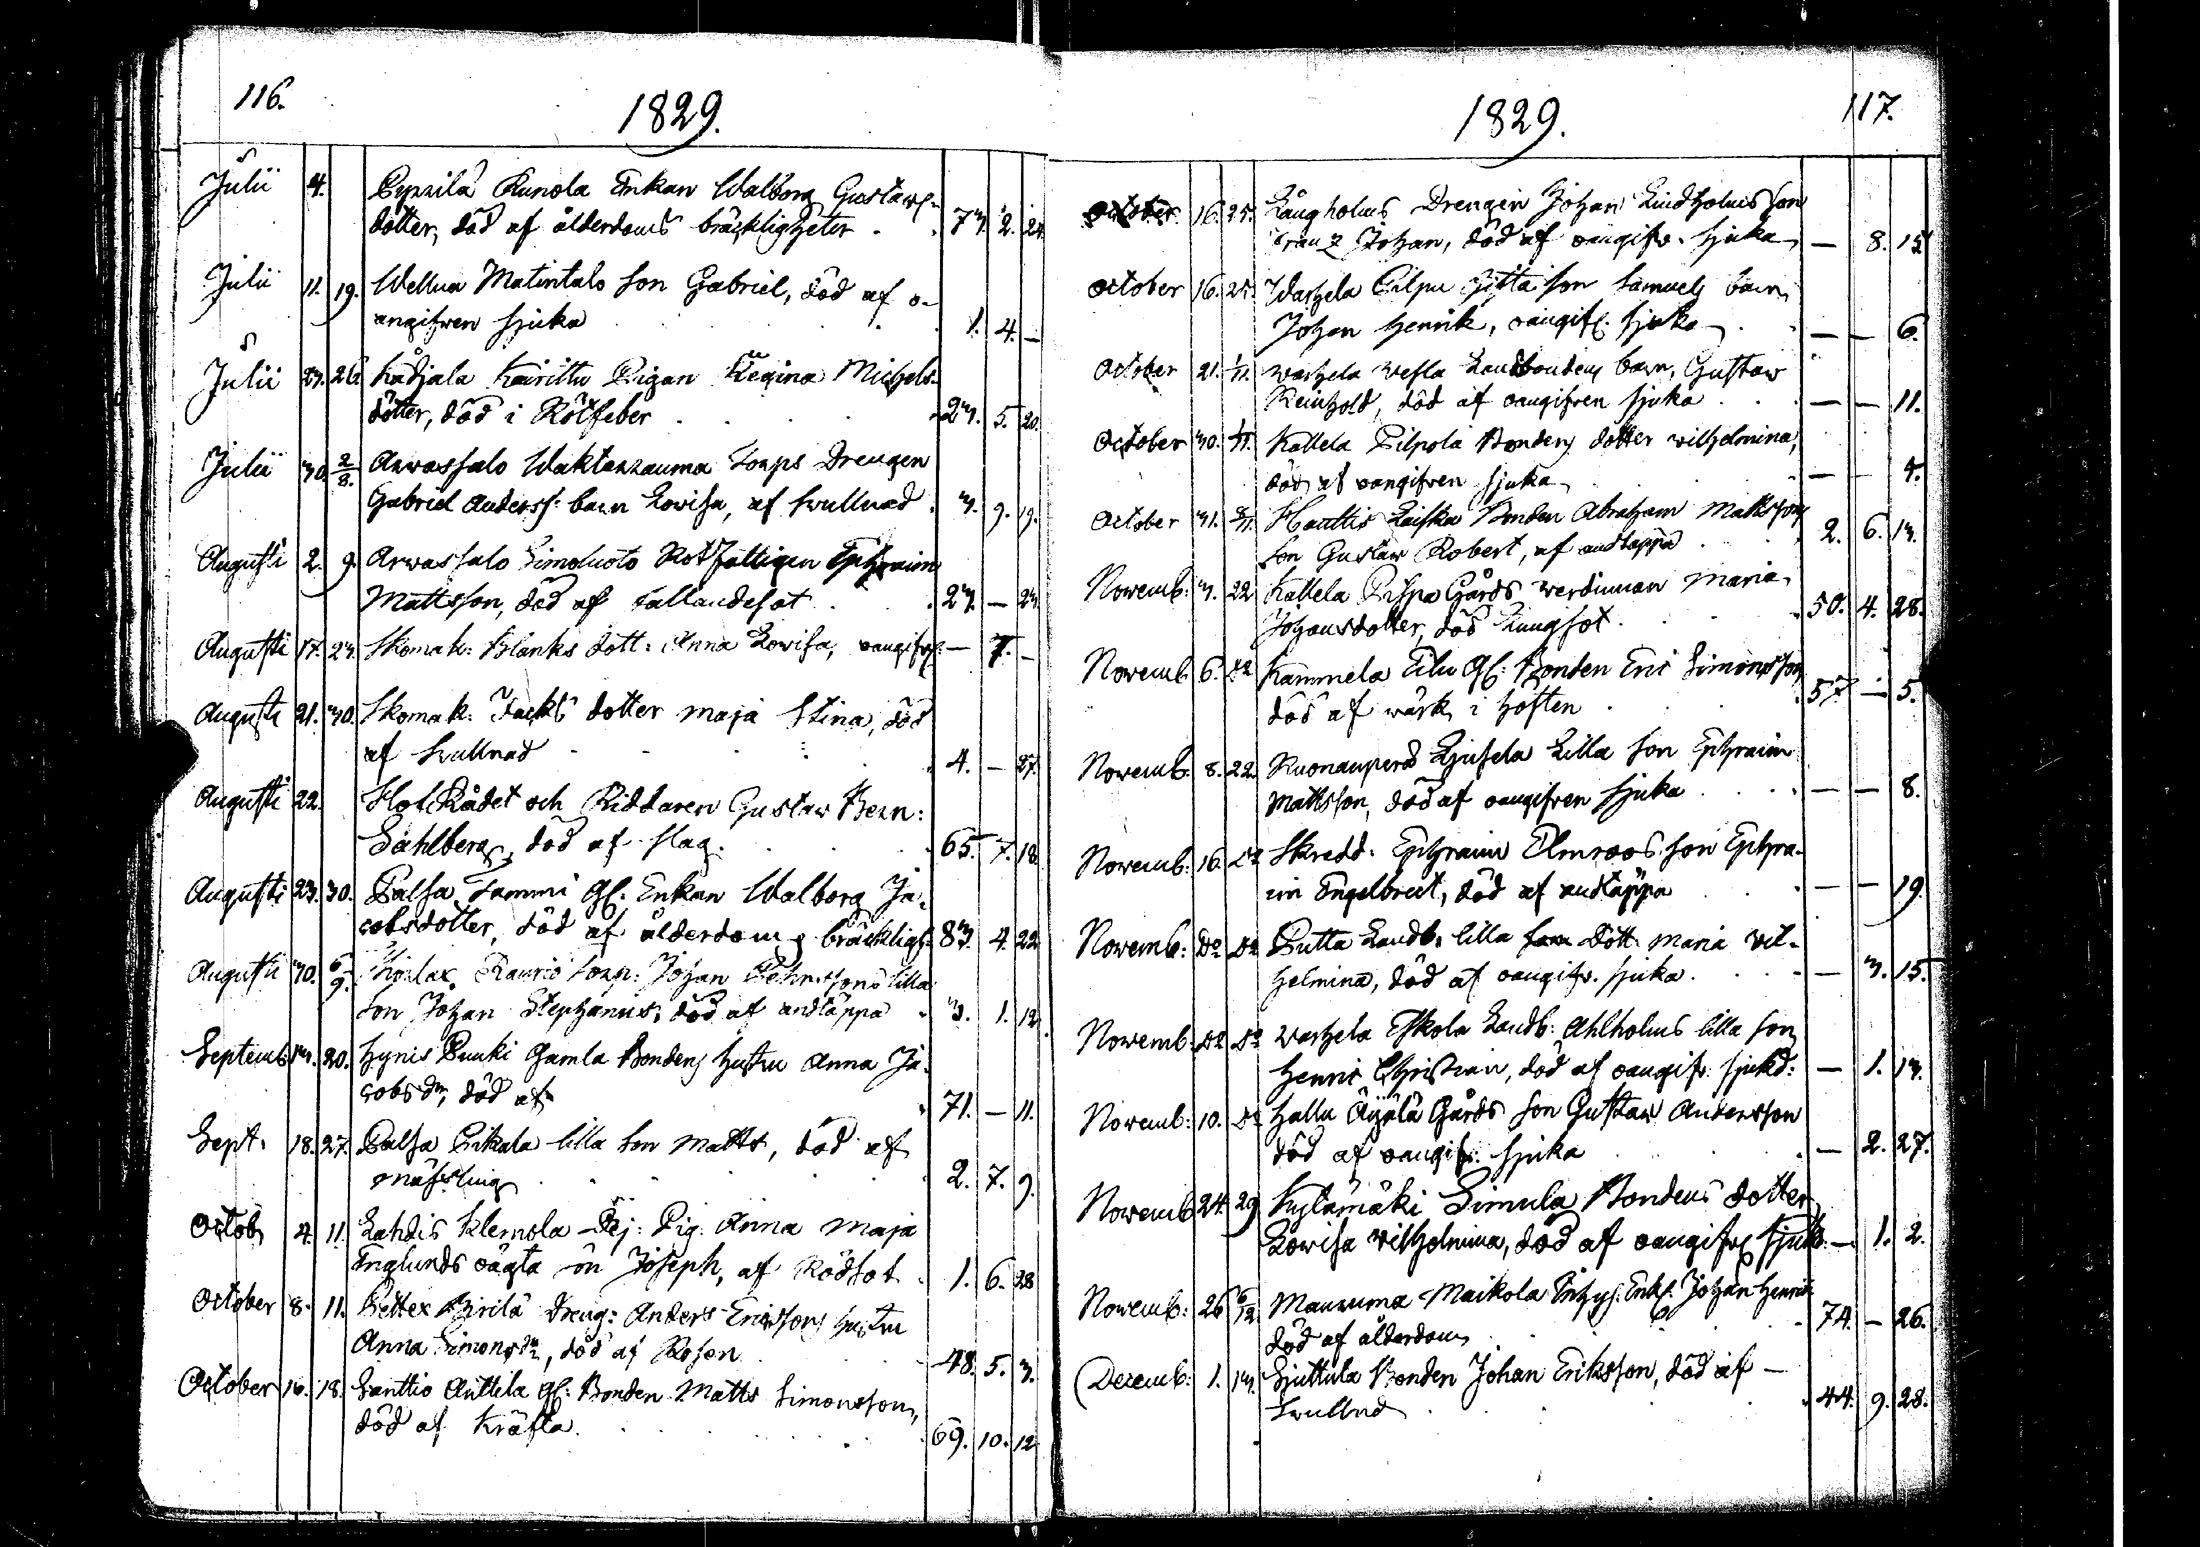 116.
1829.
Julii 4. Pyrrilä Runola Enkan Walborg Gustafs-
dotter, död af ålderdoms bräckligheter 73. 2. 24.
Julii 11. 19. Wellua Matintalo son Gabriel, död af o-
angifwen sjuka 1. 4. —
Julii 23. 26. Kädjala Kairittu Pigan Regina Michels-
dotter, död i Rötfeber 23. 5. 20.
Julii 30. 2/8. Arwassalo Waktarrauma Torps Drengen
Gabriel Anderss: barn Lowisa, af swullnad 3. 9. 19.
Augusti 2. 9. Arwassalo Simoluoto Rotfattigen Ephraim
Mattsson, död af fallandesot 23. — 23.
Augusti 17. 23. Skomak: Blanks dott: Anna Lowisa, oangifw: — 7. —
Augusti 21. 30. Skomak: Jacks dotter Maja Stina, död
af swullnad 4. — 27.
Augusti 22. Hof Rådet och Riddaren Gustaw Bern:
Sahlberg, död af slag. 65. 7. 18.
Augusti 23. 30. Palsa Sammi Gl: Enkan Walborg Ja-
cobsdotter, död af ålderdoms bräckligh: 83. 4. 22
Augusti 30. 6/9. Raurio Torp: Johan lilla
son Johan Stephanus, död af andtäppa 3. 1. 12.
Septemb: 13. 20. Hynis Puuki Gamla Bondens hustru Anna Ja-
cobsdr, död af 71. — 11.
Sept. 18. 27. Palsa Pikala lilla son Matts, död af
mässling 2. 7. 9.
Octob: 4. 11. Lahdis Klemola Pig: Anna Maja
Englunds oägta son Joseph, af Rödsot 1. 6. 28
October 8. 11. Pettex Pirilä Dreng: Anders Ericssons hustru
Anna Simonsdr, död af Rosen 48. 5. 3.
October 10. 18. Santtio Anttila gl: Bonden Matts Simonsson,
död af Kräfta. 69. 10. 12
1829.
117.
October 16. 25. Långholms Drengen Johan Lindholms son
Franz Johan, död af oangifw. sjuka — 8. 15
October 16. 25. Warhela Pilpu son Samuels barn
Johan Henrik, oangifw: sjuka — — 6.
October 21. 1/11. Warhela Landbondens barn, Gustaw
Reinhold, död af oangifwen sjuka — — 11.
October 30. 1/11. Kallela Pilpola Bondens dotter Wilhelmina,
död af oangifwen sjuka — — 4.
October 31. 8/11. Hauttis Laiska Bonden Abraham Mattssons
son Gustaw Robert, af andtäppa 2. 6. 13.
Novemb: 3. 22 Kallela Gårds werdinnan Maria
Johansdotter, död Lungsot 50. 4. 28.
Novemb 6. Do Kammela Eilu Gl: Bonden Eric Simonsson
död af wärk i höften 57 — 5.
Novemb: 8. 22. Ruonanperä Lilla son Ephraim
Mattsson, död af oangifwen sjuka — — 8.
Novemb: 16. Do Skredd: Ephraim Elmroos son Ephra-
im Engelbrect, död af andtäppa — — 19.
Novemb: Do Do Putta Landb: lilla dott: Maria Wil-
helmina, död af oangifw. sjuka — 3. 15.
Novemb: Do Do Warhela Eskola Landb: Ahlholms lilla son
Henric Christian, död af oangifw: sjukd: — 1. 13.
Novemb: 10. Do Hallu Äyälä Gårds son Gustaw Andersson
död af oangifw: sjuka — 2. 27.
Novemb 24. 29 Kylämäki Simula Bondens dotter
Lowisa Wilhelmina, död af oangifw: sjukd: — 1. 2.
Novemb: 26 6/12 Maununa Maikola Johan Henrik
död af ålderdom 74. — 26.
Decemb: 1. 13. Sjuttula Bonden Johan Eriksson, död af —
swullnd 44. 9. 28.